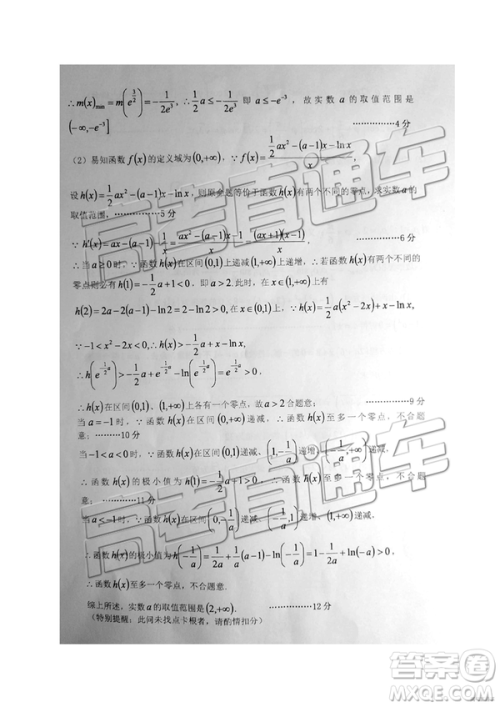 ∴m(x)min = m(e^{3/2}) = -1/(2e³), ∴ 1/2 a ≤ -1/(2e³) 即 a ≤ -e^{-3}, 故实数 a 的取值范围是
(-∞,-e^{-3}] ……………4分
(2) 易知函数 f(x) 的定义域为 (0,+∞), ∵ f(x) = (1/2 ax² - (a-1)x - ln x)/
设 h(x) = 1/2 ax² - (a-1)x - ln x, 则原命题等价于函数 h(x) 有两个不同的零点, 求实数 a 的
取值范围, ……………5分
∵ h'(x) = ax - (a-1) - 1/x = (ax² - (a-1)x - 1)/x = (ax+1)(x-1)/x, ……………6分
∴ 当 a ≥ 0 时, ∵ 函数 h(x) 在区间 (0,1) 上递减 (1,+∞) 上递增, ∴ 若函数 h(x) 有两个不同的
零点则必有 h(1) = -1/2 a + 1 < 0, 即 a > 2 此时, 在 x∈(1,+∞) 上有
h(2) = 2a - 2(a-1) - ln 2 = 2 - ln 2 > 0, 在 x∈(0,1) 上, ∵ h(x) = 1/2 a(x² - 2x) + x - ln x,
∵ -1 < x² - 2x < 0, ∴ h(x) > -1/2 a + x - ln x,
∴ h(e^{-1/2 a}) > -1/2 a + e^{-1/2 a} - ln(e^{-1/2 a}) > 0.
∴ h(x) 在区间 (0,1), (1,+∞) 上各有一个零点, 故 a > 2 合题意; ……………9分
当 a = -1 时, ∵ 函数 h(x) 在区间 (0,+∞) 递减, ∴ 函数 h(x) 至多一个零点, 不合题
意; ………10分
当 -1 < a < 0 时, ∵ 函数 h(x) 在区间 (0,1) 递减, (1,-1/a) 递增, (-1/a,+∞) 递减,
∴ 函数 h(x) 的极小值为 h(1) = -1/2 a + 1 > 0, ∴ 函数 h(x) 至多一个零点, 不合题
意; ………11分
当 a < -1 时, ∵ 函数 h(x) 在区间 (0,-1/a) 递减, (-1/a,1) 递增, (1,+∞) 递减,
∴ 函数 h(x) 的极小值为 h(-1/a) = 1/(2a) + 1/a (a-1) - ln(-1/a) = 1 - 1/(2a) + ln(-a) > 0.
∴ 函数 h(x) 至多一个零点, 不合题意.
综上所述: 实数 a 的取值范围是 (2,+∞). ……………12分
(特别提醒: 此问未找点卡根者, 请酌情扣分)
高考直通车
高考直通车
高考直通车
答案圈
MXQE.COM